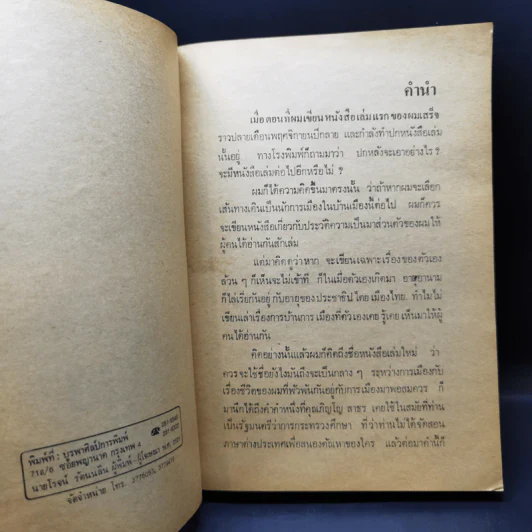 พิมพ์ที่ : บูรพาศิลป์การพิมพ์
718/6 ซอยพญานาค กรุงเทพ 4
นายโรจน์ รัตนนลิน ผู้พิมพ์-ผู้โฆษณา
จัดจำหน่าย โทร.
คำนำ
เมื่อตอนที่ผมเขียนหนังสือเล่มแรกของผมเสร็จ
ราวปลายเดือนพฤศจิกายนปีกลาย และกำลังทำปกหนังสือเล่ม
นั้นอยู่ ทางโรงพิมพ์ก็ถามมาว่า ปกหลังจะเอาอย่างไร ?
จะมีหนังสือเล่มต่อไปอีกหรือไม่ ?
ผมก็ได้ความคิดขึ้นมาตรงนั้น ว่าถ้าหากผมจะเลือก
เส้นทางเดินเป็นนักการเมืองในบ้านเมืองนี้ต่อไป ผมก็ควร
จะเขียนหนังสือเกี่ยวกับประวัติความเป็นมาส่วนตัวของผมให้
ผู้คนได้อ่านกันสักเล่ม
แต่มาคิดดูว่าหาก จะเขียนเฉพาะเรื่องของตัวเอง
ล้วน ๆ ก็เห็นจะไม่เข้าที ก็ในเมื่อตัวเองเกิดมา อายุอานาม
ก็ไล่เรี่ยกันอยู่ กับอายุของประชาธิปไตยเมืองไทย. ทำไมไม่
เขียนเล่าเรื่องการบ้านการ เมืองที่ตัวเองเคย รู้เคยเห็นมาให้ผู้
คนได้อ่านกัน
คิดอย่างนั้นแล้วผมก็คิดถึงชื่อหนังสือเล่มใหม่ ว่า
ควรจะใช้ชื่อยังไงมันถึงจะเป็นกลาง ๆ ระหว่างการเมืองกับ
เรื่องชีวิตของผมที่พัวพันกันอยู่กับการเมืองมาพอสมควร ก็
มานึกได้ถึงคำคำหนึ่งที่คุณภิญโญ สาธร เคยใช้ในสมัยที่ท่าน
เป็นรัฐมนตรีว่าการกระทรวงศึกษา ที่ว่าท่านไม่ได้จัดสอน
ภาษาต่างประเทศเพื่อสนองตัณหาของใคร แล้วต่อมาคำนี้ก็